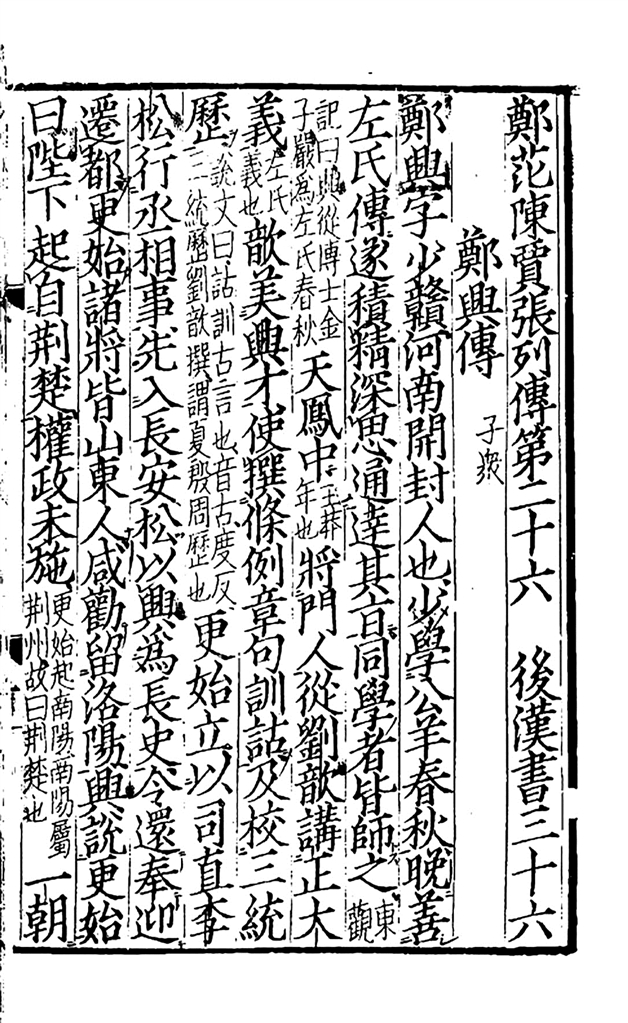 鄭范陳賈張列傳第二十六 後漢書三十六
鄭興傳 子衆
鄭興字少贛河南開封人也少學公羊春秋晚善
左氏傳遂積精深思通達其旨同學者皆師之 東觀
記曰興從博士金子嚴爲左氏春秋 天鳳中 王莽年也 將門人從劉歆講正大
義 左氏義也 歆美興才使撰條例章句訓詁及校三統
歷 說文曰詁訓古言也音古度反三統歷劉歆撰謂夏殷周歷也 更始立以司直李
松行丞相事先入長安松以興爲長史令還奉迎
遷都更始諸將皆山東人咸勸留洛陽興說更始
曰陛下起自荆楚權政未施 更始起南陽南陽屬荆州故曰荆楚也 一朝